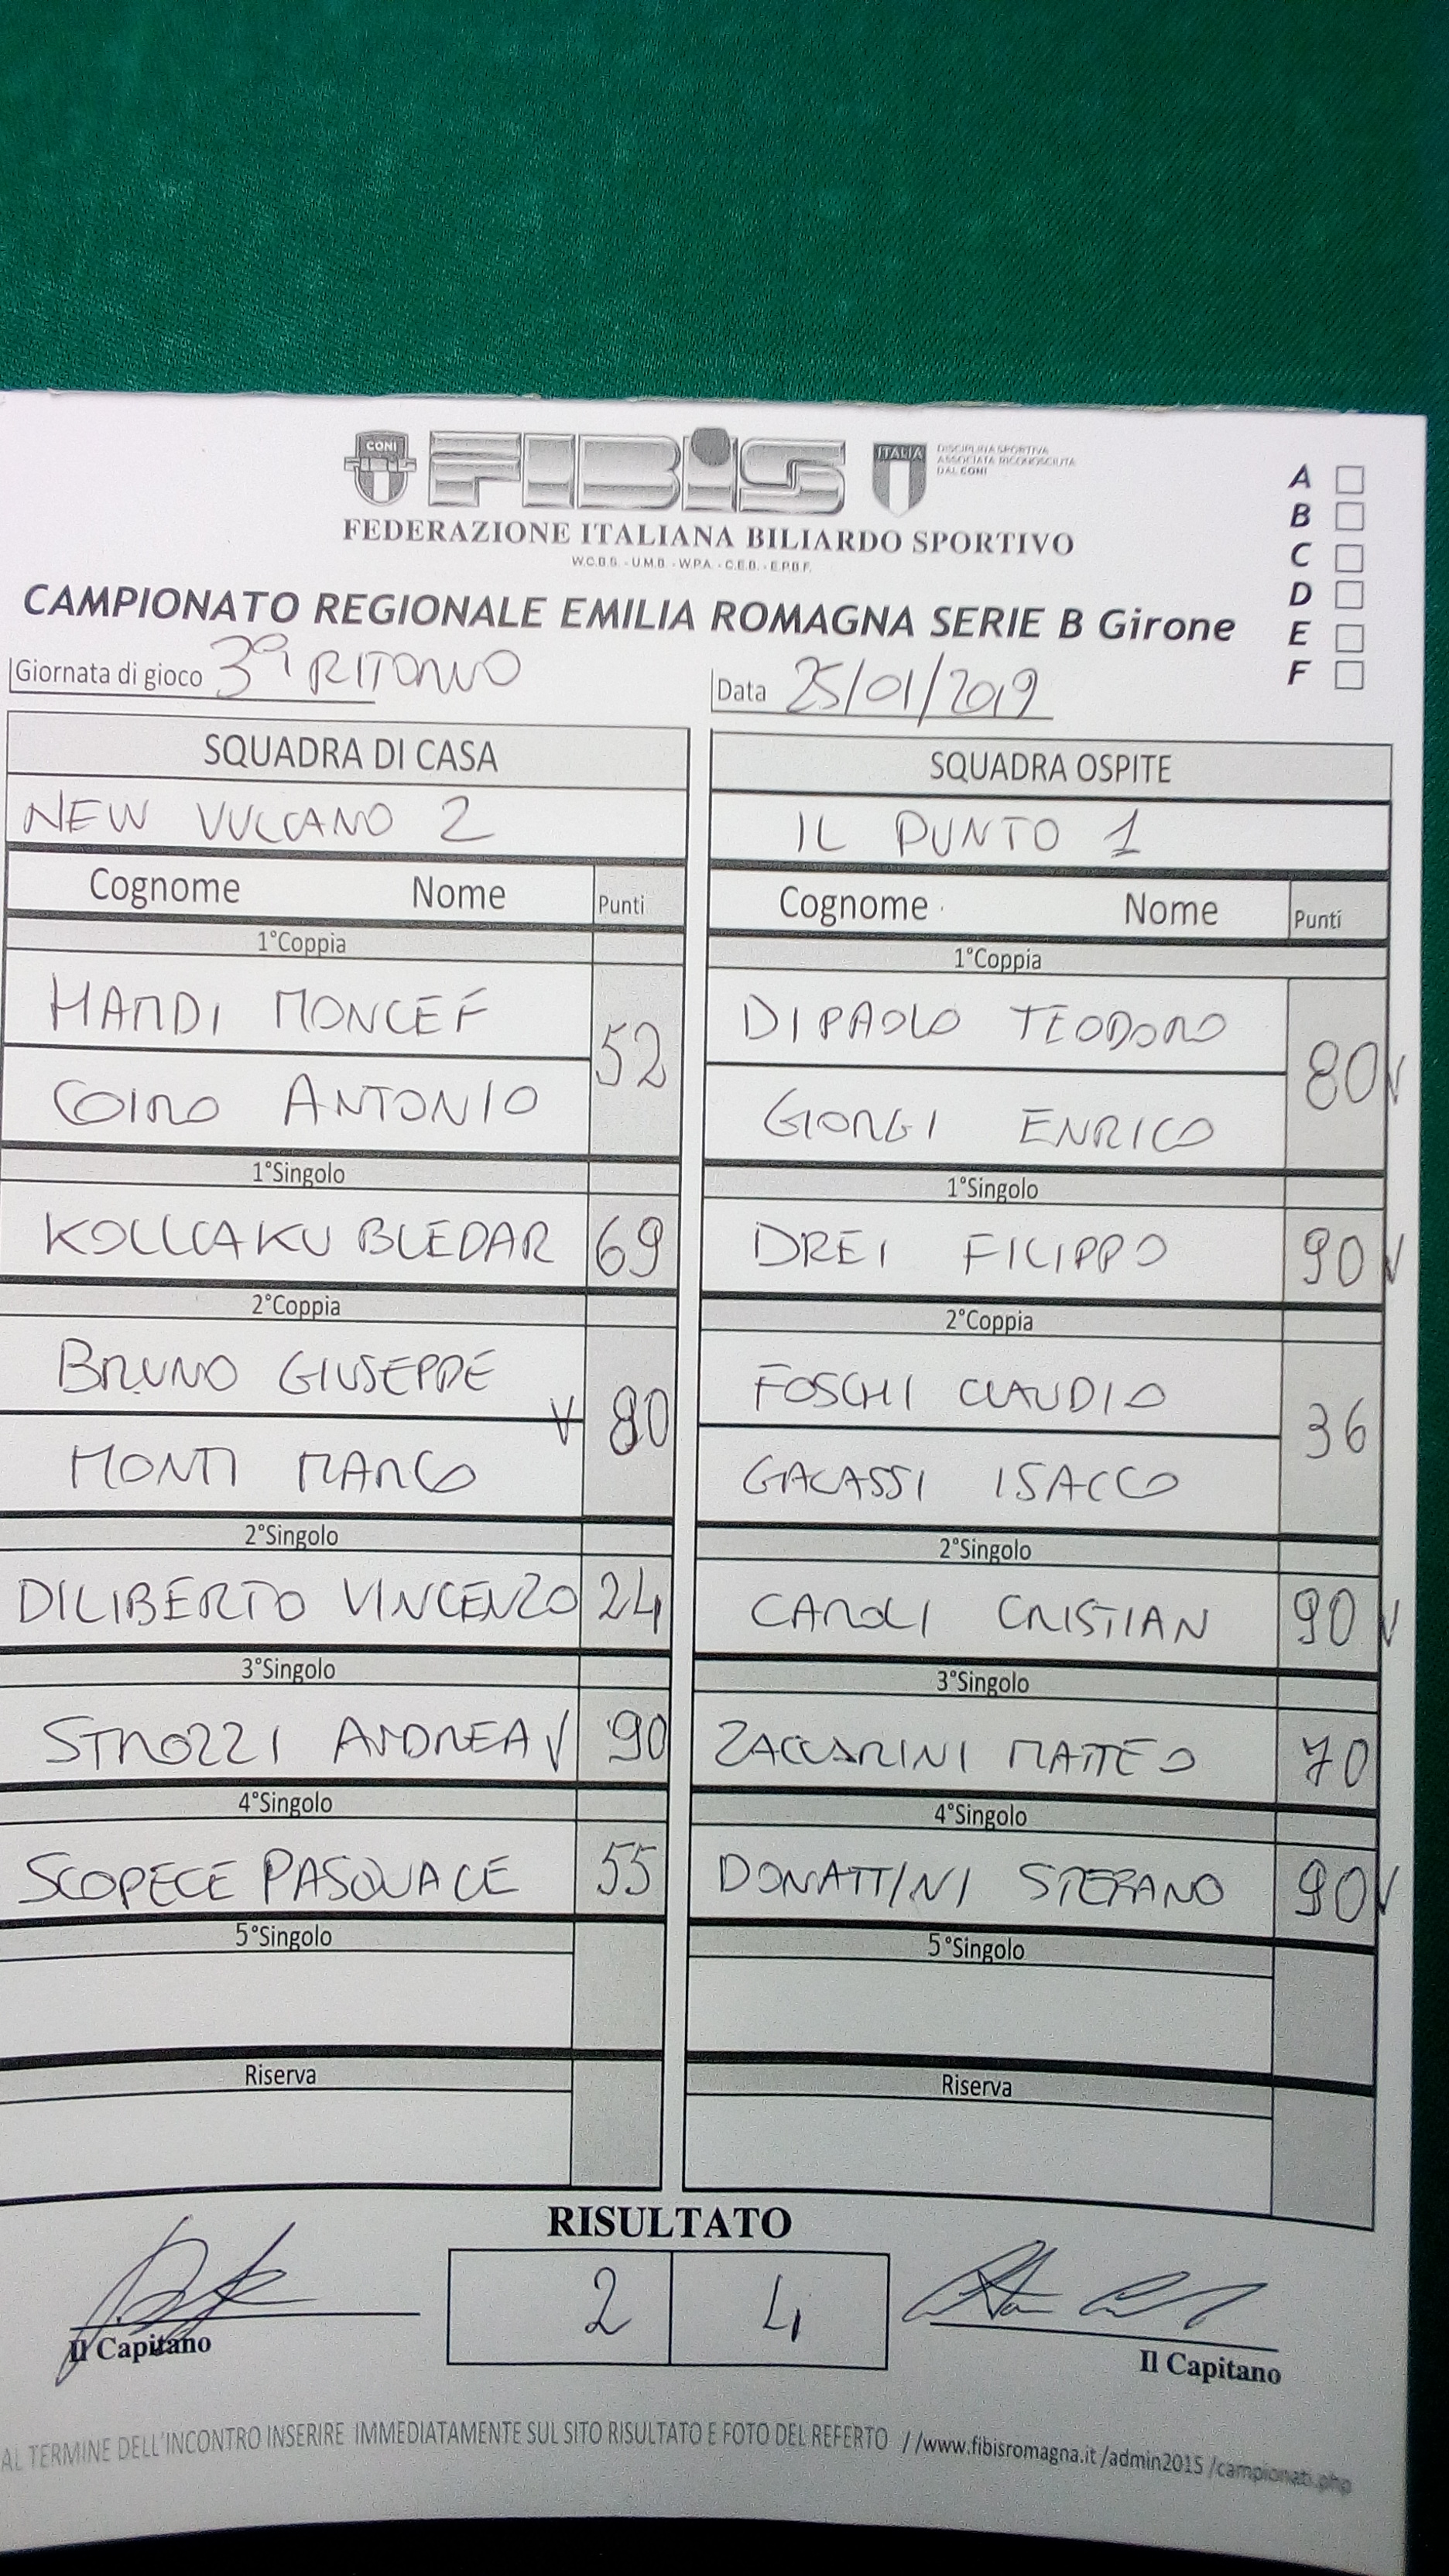 CONI
FIBIS
ITALIA
DISCIPLINA SPORTIVA
ASSOCIATA RICONOSCIUTA
DAL CONI
FEDERAZIONE ITALIANA BILIARDO SPORTIVO
W.C.B.S. - U.M.B. - W.P.A. - C.E.B. - E.P.B.F.
A
B
C
D
E
F
CAMPIONATO REGIONALE EMILIA ROMAGNA SERIE B Girone
Giornata di gioco 3ª RITORNO
Data 25/01/2019
SQUADRA DI CASA
NEW VULCANO 2
Cognome Nome Punti
1°Coppia
HAMDI MONCEF
52
COIRO ANTONIO
1°Singolo
KOLLCAKU BLEDAR 69
2°Coppia
BRUNO GIUSEPPE
V 80
MONTI MARCO
2°Singolo
DILIBERTO VINCENZO 24
3°Singolo
STROZZI ANDREA V 90
4°Singolo
SCOPECE PASQUALE 55
5°Singolo
Riserva
SQUADRA OSPITE
IL PUNTO 1
Cognome Nome Punti
1°Coppia
DI PAOLO TEODORO
80 V
GIORGI ENRICO
1°Singolo
DREI FILIPPO 90 V
2°Coppia
FOSCHI CLAUDIO
36
GALASSI ISACCO
2°Singolo
CAROLI CRISTIAN 90 V
3°Singolo
ZACCARINI MATTEO 70
4°Singolo
DONATTINI STEFANO 90 V
5°Singolo
Riserva
RISULTATO
2 4
Il Capitano
Il Capitano
AL TERMINE DELL'INCONTRO INSERIRE IMMEDIATAMENTE SUL SITO RISULTATO E FOTO DEL REFERTO //www.fibisromagna.it /admin2015 /campionati.php